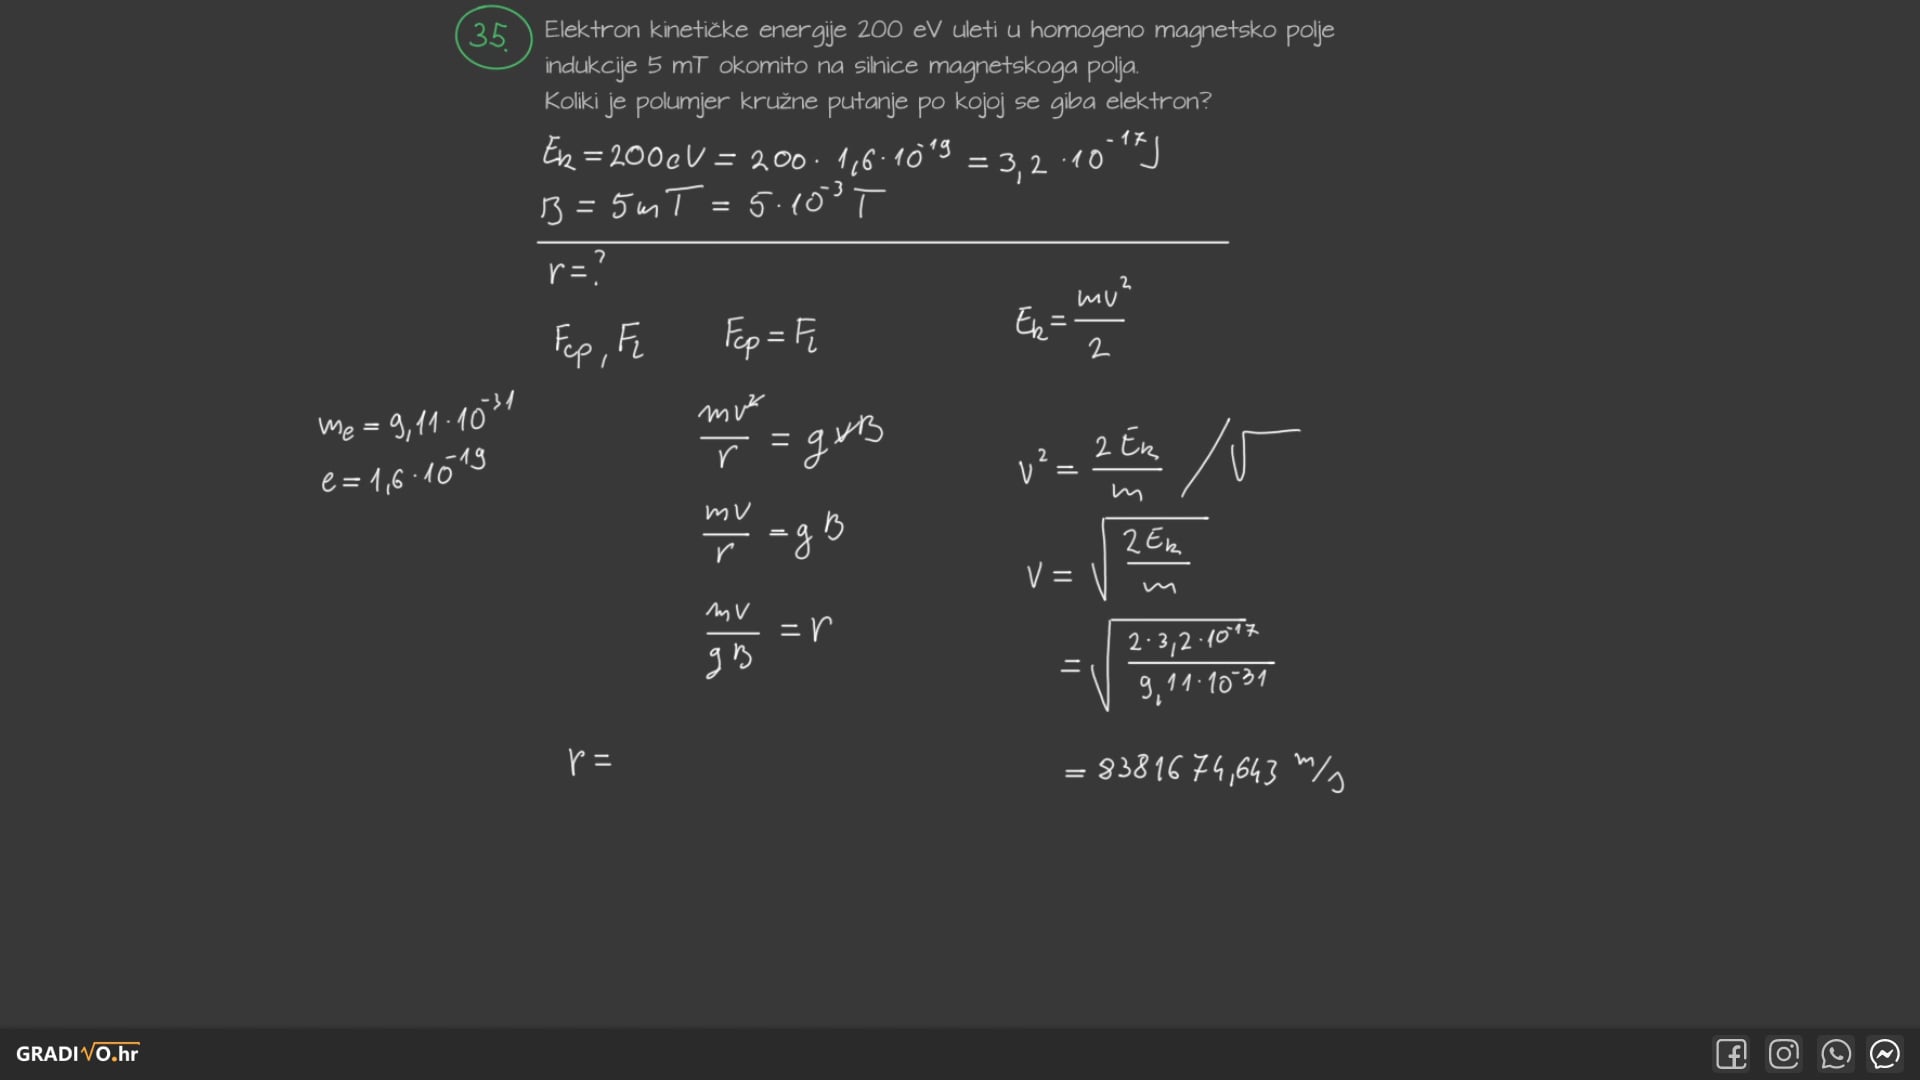 35. Elektron kinetičke energije 200 eV uleti u homogeno magnetsko polje
indukcije 5 mT okomito na silnice magnetskoga polja.
Koliki je polumjer kružne putanje po kojoj se giba elektron?
Ek = 200eV = 200 · 1,6 · 10^-19 = 3,2 · 10^-17 J
B = 5mT = 5 · 10^-3 T
r = ?
Fcp, FL
Fcp = FL
me = 9,11 · 10^-31
e = 1,6 · 10^-19
mv²/r = qvB
mv/r = qB
mv/qB = r
r =
Ek = mv²/2
v² = 2Ek/m /√
v = √(2Ek/m)
= √(2 · 3,2 · 10^-17/9,11 · 10^-31)
= 8381674,643 m/s
GRADIVO.hr